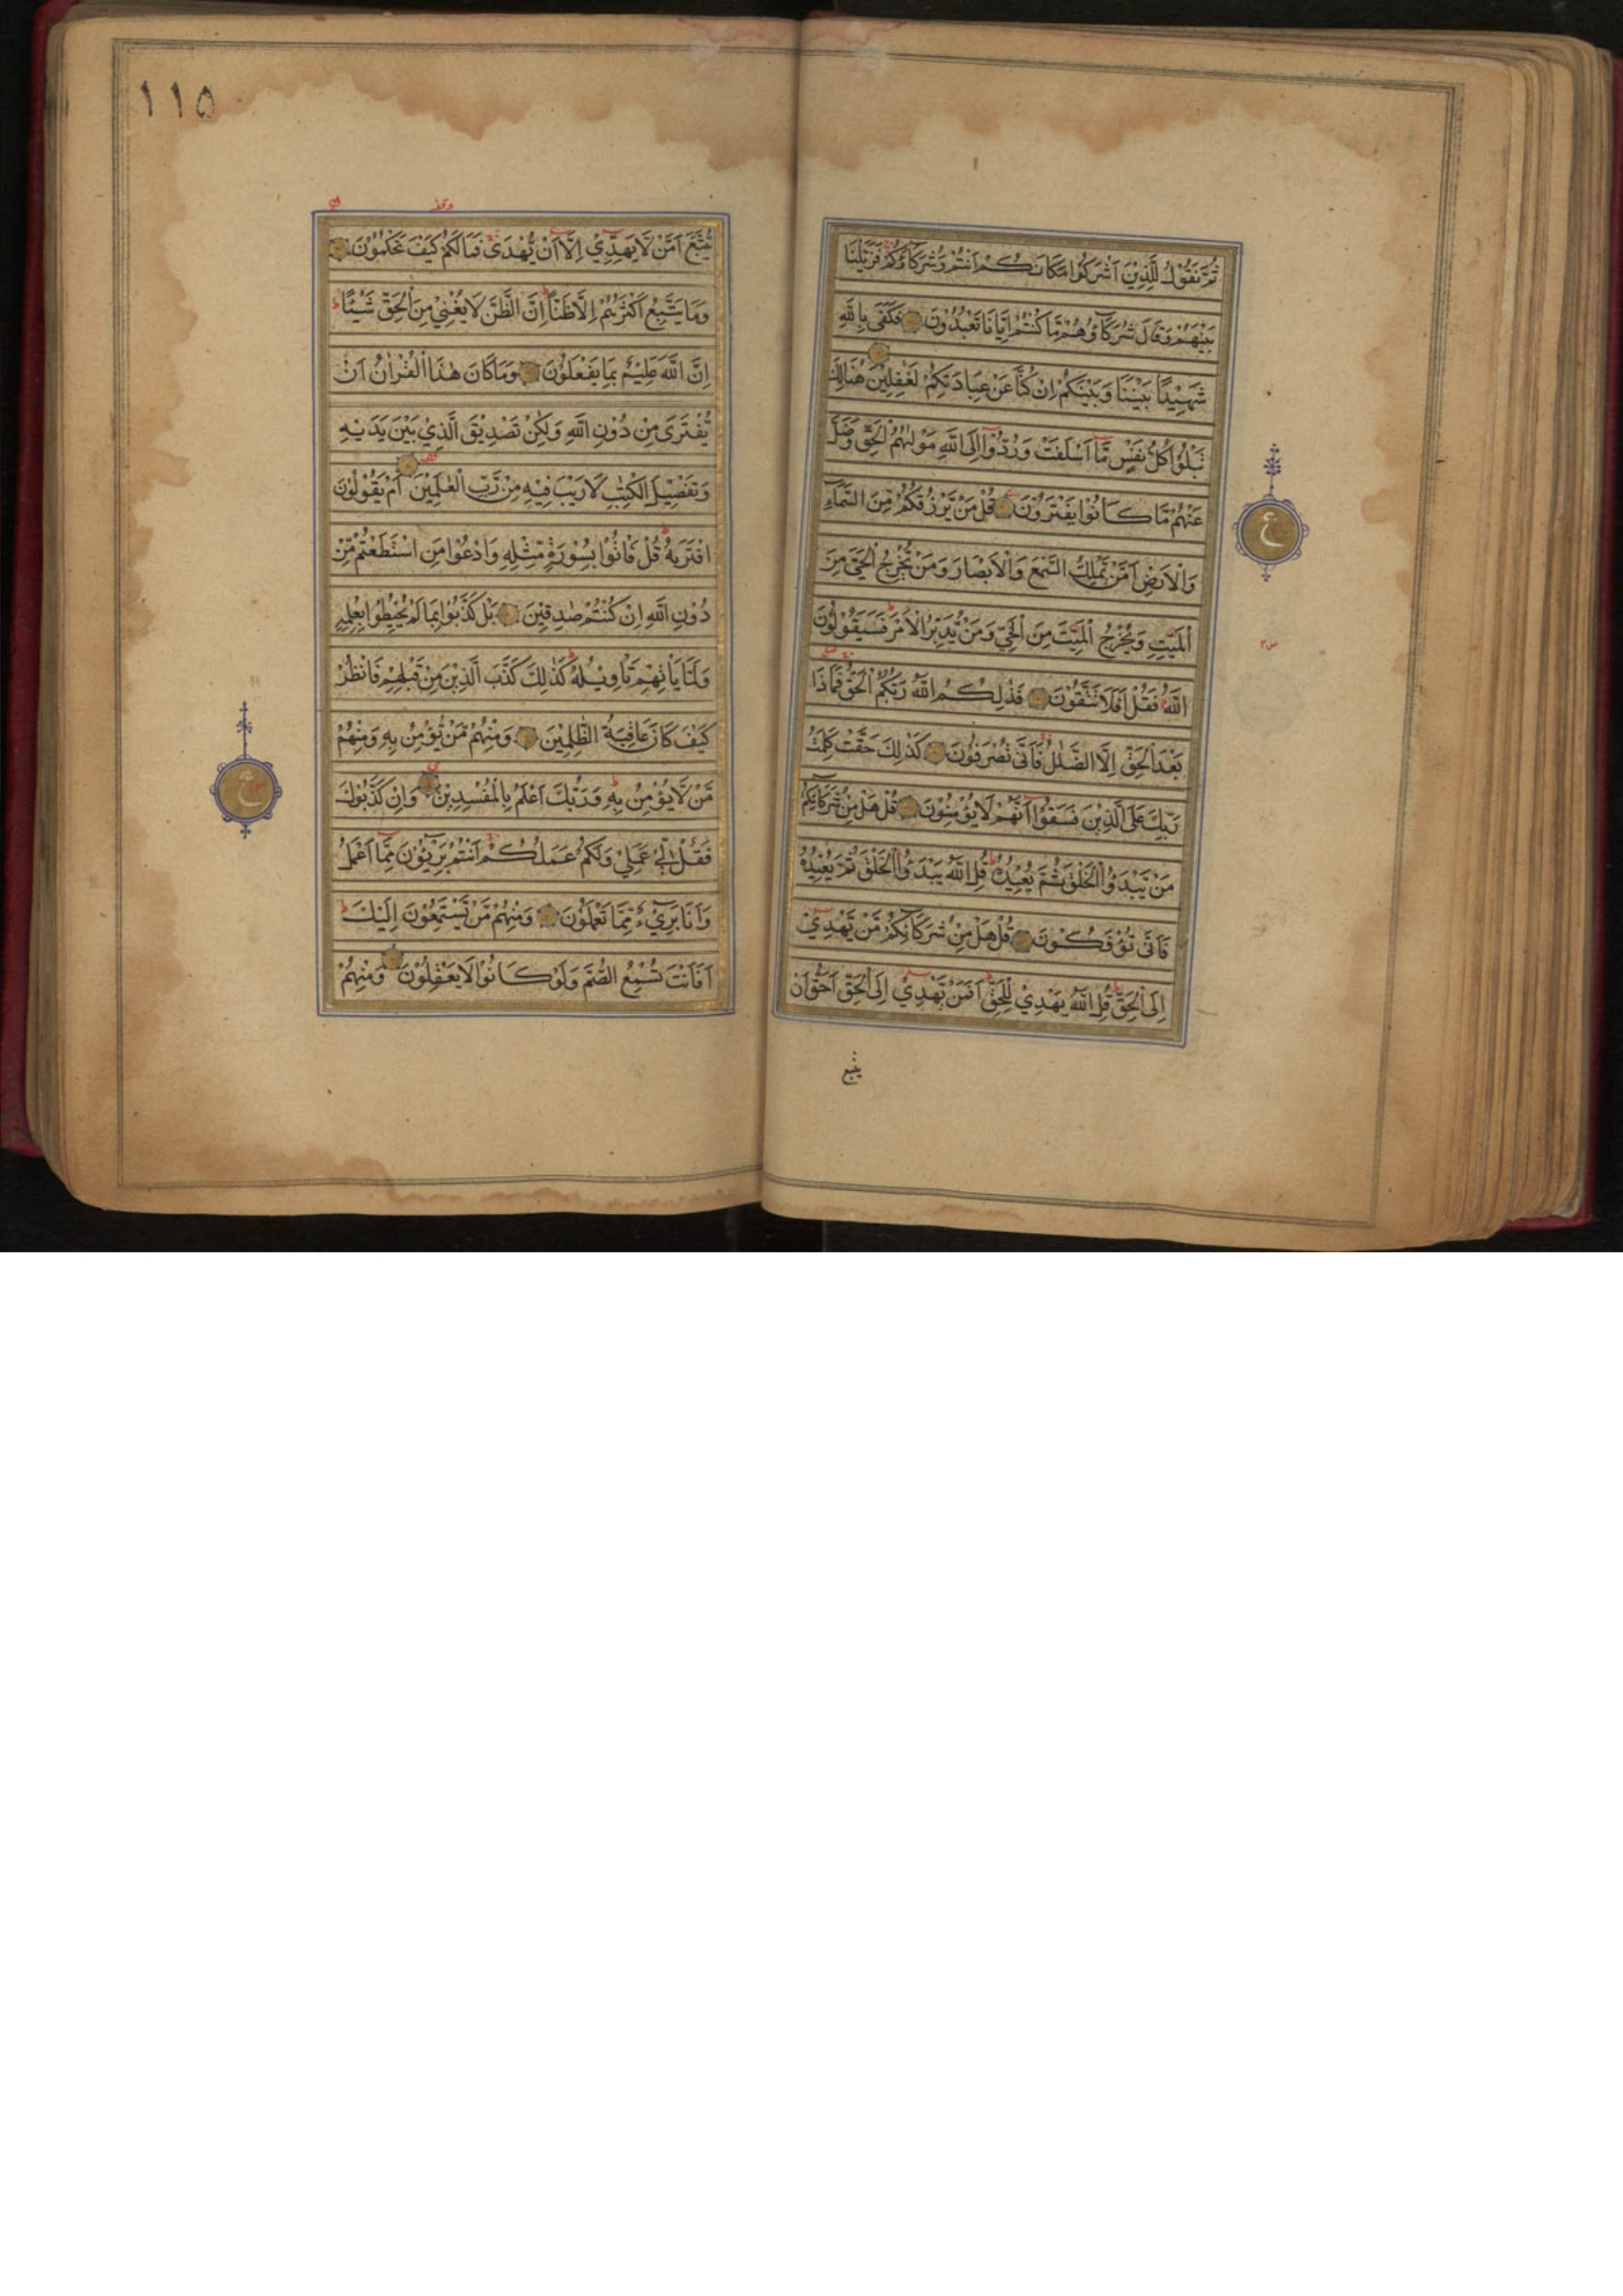 ثُمَّ نَقُوْلُ لِلَّذِيْنَ اَشْرَكُوْا مَكَانَكُمْ اَنْتُمْ وَشُرَكَاؤُكُمْ فَزَيَّلْنَا
بَيْنَهُمْ وَقَالَ شُرَكَاؤُهُمْ مَّا كُنْتُمْ اِيَّانَا تَعْبُدُوْنَ فَكَفٰى بِاللّٰهِ
شَهِيْدًا بَيْنَنَا وَبَيْنَكُمْ اِنْ كُنَّا عَنْ عِبَادَتِكُمْ لَغٰفِلِيْنَ هُنَالِكَ
تَبْلُوْا كُلُّ نَفْسٍ مَّا اَسْلَفَتْ وَرُدُّوْا اِلَى اللّٰهِ مَوْلٰىهُمُ الْحَقِّ وَضَلَّ
عَنْهُمْ مَّا كَانُوْا يَفْتَرُوْنَ قُلْ مَنْ يَّرْزُقُكُمْ مِّنَ السَّمَآءِ
وَالْاَرْضِ اَمَّنْ يَّمْلِكُ السَّمْعَ وَالْاَبْصَارَ وَمَنْ يُّخْرِجُ الْحَيَّ مِنَ
الْمَيِّتِ وَيُخْرِجُ الْمَيِّتَ مِنَ الْحَيِّ وَمَنْ يُّدَبِّرُ الْاَمْرَ فَسَيَقُوْلُوْنَ
اللّٰهُ فَقُلْ اَفَلَا تَتَّقُوْنَ فَذٰلِكُمُ اللّٰهُ رَبُّكُمُ الْحَقُّ فَمَاذَا
بَعْدَ الْحَقِّ اِلَّا الضَّلٰلُ فَاَنّٰى تُصْرَفُوْنَ كَذٰلِكَ حَقَّتْ كَلِمَتُ
رَبِّكَ عَلَى الَّذِيْنَ فَسَقُوْا اَنَّهُمْ لَا يُؤْمِنُوْنَ قُلْ هَلْ مِنْ شُرَكَآئِكُمْ
مَنْ يَّبْدَؤُا الْخَلْقَ ثُمَّ يُعِيْدُهٗ قُلِ اللّٰهُ يَبْدَؤُا الْخَلْقَ ثُمَّ يُعِيْدُهٗ
فَاَنّٰى تُؤْفَكُوْنَ قُلْ هَلْ مِنْ شُرَكَآئِكُمْ مَّنْ يَّهْدِيْ
اِلَى الْحَقِّ قُلِ اللّٰهُ يَهْدِيْ لِلْحَقِّ اَفَمَنْ يَّهْدِيْ اِلَى الْحَقِّ اَحَقُّ اَنْ
يتبع
ع
١١٥
يُّتَّبَعَ اَمَّنْ لَّا يَهِدِّيْ اِلَّا اَنْ يُّهْدٰى فَمَالَكُمْ كَيْفَ تَحْكُمُوْنَ
وَمَا يَتَّبِعُ اَكْثَرُهُمْ اِلَّا ظَنًّا اِنَّ الظَّنَّ لَا يُغْنِيْ مِنَ الْحَقِّ شَيْئًا
اِنَّ اللّٰهَ عَلِيْمٌ بِمَا يَفْعَلُوْنَ وَمَا كَانَ هٰذَا الْقُرْاٰنُ اَنْ
يُّفْتَرٰى مِنْ دُوْنِ اللّٰهِ وَلٰكِنْ تَصْدِيْقَ الَّذِيْ بَيْنَ يَدَيْهِ
وَتَفْصِيْلَ الْكِتٰبِ لَا رَيْبَ فِيْهِ مِنْ رَّبِّ الْعٰلَمِيْنَ اَمْ يَقُوْلُوْنَ
افْتَرٰىهُ قُلْ فَاْتُوْا بِسُوْرَةٍ مِّثْلِهٖ وَادْعُوْا مَنِ اسْتَطَعْتُمْ مِّنْ
دُوْنِ اللّٰهِ اِنْ كُنْتُمْ صٰدِقِيْنَ بَلْ كَذَّبُوْا بِمَا لَمْ يُحِيْطُوْا بِعِلْمِهٖ
وَلَمَّا يَاْتِهِمْ تَاْوِيْلُهٗ كَذٰلِكَ كَذَّبَ الَّذِيْنَ مِنْ قَبْلِهِمْ فَانْظُرْ
كَيْفَ كَانَ عَاقِبَةُ الظّٰلِمِيْنَ وَمِنْهُمْ مَّنْ يُّؤْمِنُ بِهٖ وَمِنْهُمْ
مَّنْ لَّا يُؤْمِنُ بِهٖ وَرَبُّكَ اَعْلَمُ بِالْمُفْسِدِيْنَ وَاِنْ كَذَّبُوْكَ
فَقُلْ لِّيْ عَمَلِيْ وَلَكُمْ عَمَلُكُمْ اَنْتُمْ بَرِيْٓـُٔوْنَ مِمَّا اَعْمَلُ
وَاَنَا بَرِيْءٌ مِّمَّا تَعْمَلُوْنَ وَمِنْهُمْ مَّنْ يَّسْتَمِعُوْنَ اِلَيْكَ
اَفَاَنْتَ تُسْمِعُ الصُّمَّ وَلَوْ كَانُوْا لَا يَعْقِلُوْنَ وَمِنْهُمْ
ع